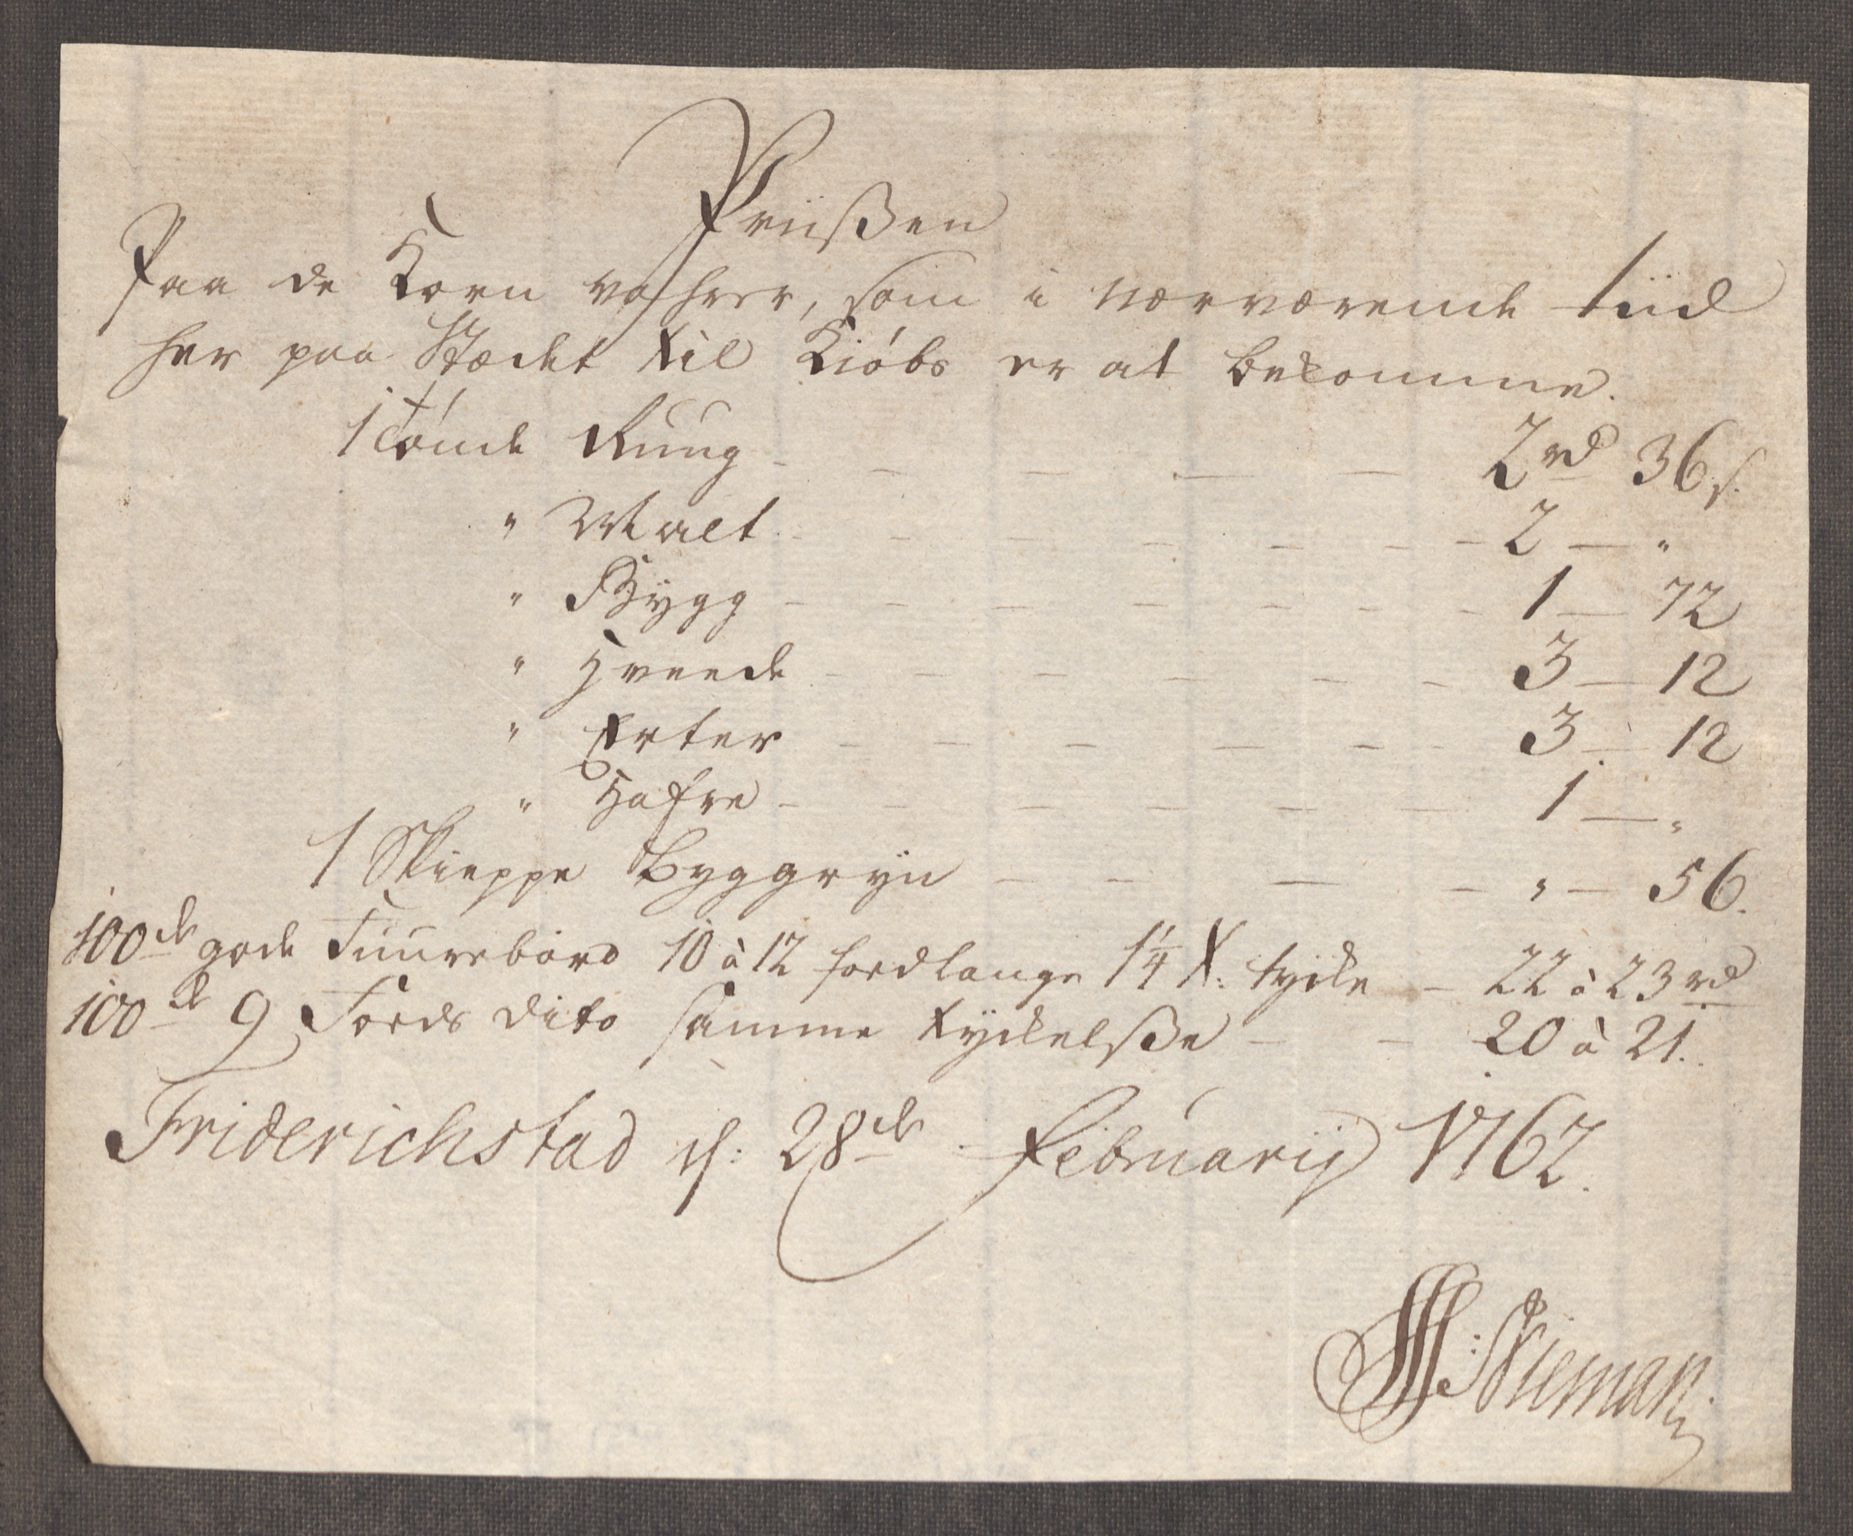 Priißen
Paa de Korn vahrer, som i nærværende tiid
her paa Stædet til Kiöbs er at bekomme.
1 Tönde Ruug - - - - - 2 rd 36 s.
" Malt - - - - - - 2 — "
" Bÿgg - - - - - - 1 — 72
" Hveede - - - - - - 3 — 12
" Erter - - - - - - 3 — 12
" Hafre - - - - - - 1 — "
1 Skieppe Byggryn - - - - " — 56.
100de gode Fuurebord 10 à 12 foed lange 1 1/4 t: tycke - 22 à 23 rd
100de 9 Foeds dito samme tyckelße - - 20 à 21.
Friderichstad d: 28de Februarij 1762.